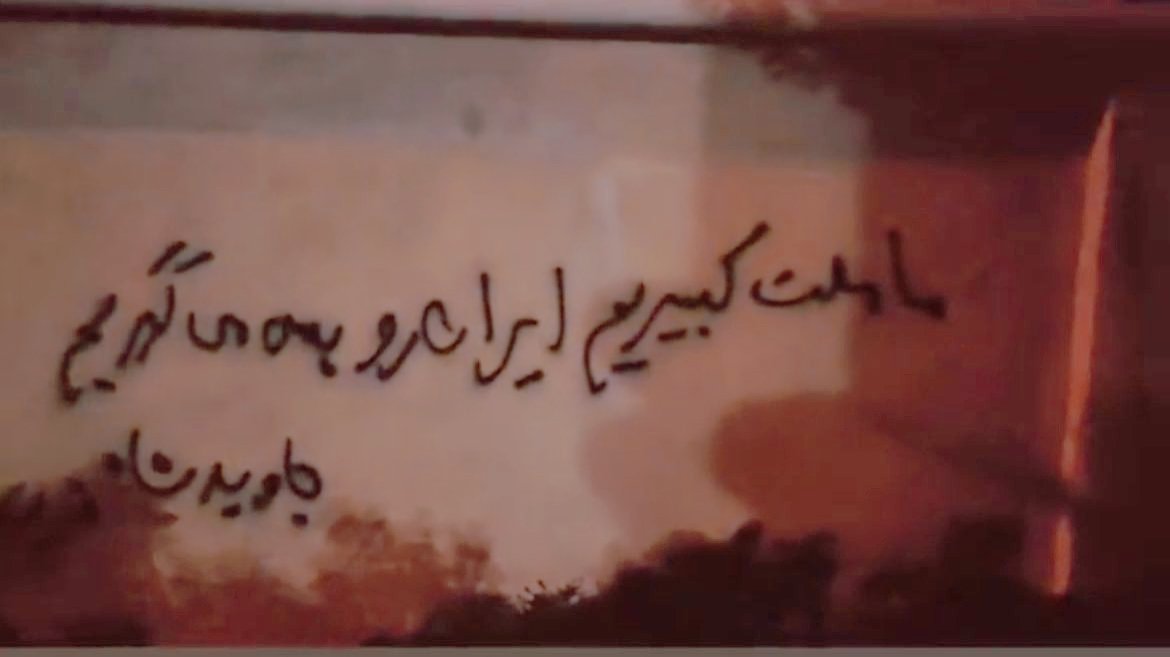 ما ملت کبیریم ایران رو پس می گیریم
جاوید شاه